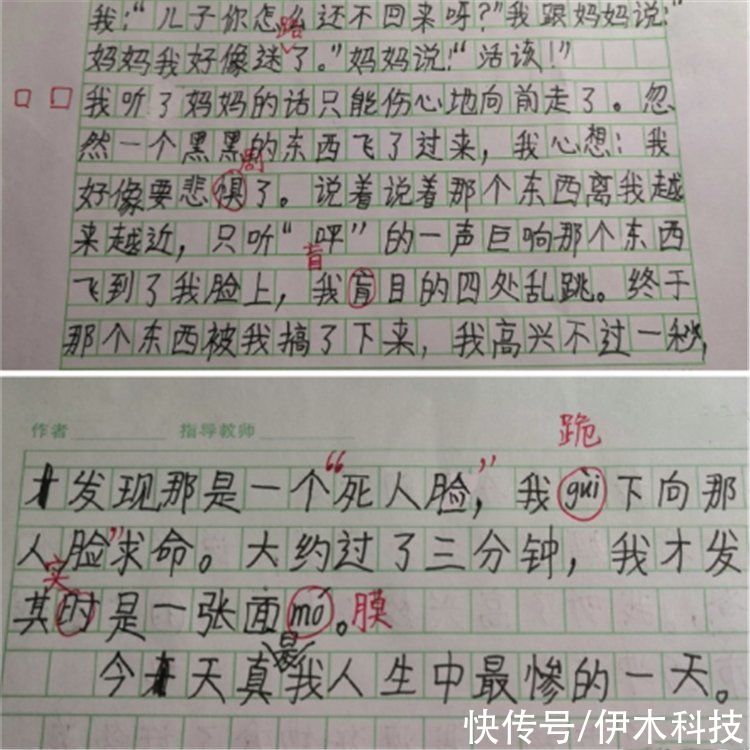 我:“儿子你怎么还不回来呀?”我跟妈妈说:“
妈妈我好像迷路了。”妈妈说!“活该!”
我听了妈妈的话只能伤心地向前走了。忽
然一个黑黑的东西飞了过来,我心想:我
好像要悲惧剧了。说着说着那个东西离我越
来越近,只听“呯”的一声巨响那个东西
盲
飞到了我脸上,我盲目的四处乱跳。终于
那个东西被我搞了下来,我高兴不过一秒,
作者 指导教师
跪
发现那是一个“死人脸”,我guì下向那
人脸”求命。大约过了三分钟,我才发
实
其时是一张面mó。膜
今天真是我人生中最惨的一天。
快传号/伊木科技